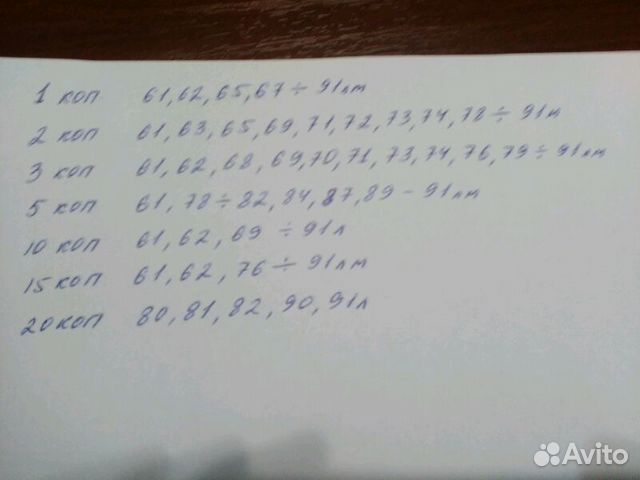 1 коп 61, 62, 65, 67 ÷ 91лм
2 коп 61, 63, 65, 69, 71, 72, 73, 74, 78 ÷ 91м
3 коп 61, 62, 68, 69, 70, 71, 73, 74, 76, 79 ÷ 91лм
5 коп 61, 78 ÷ 82, 84, 87, 89 - 91лм
10 коп 61, 62, 69 ÷ 91л
15 коп 61, 62, 76 ÷ 91лм
20 коп 80, 81, 82, 90, 91л
Avito